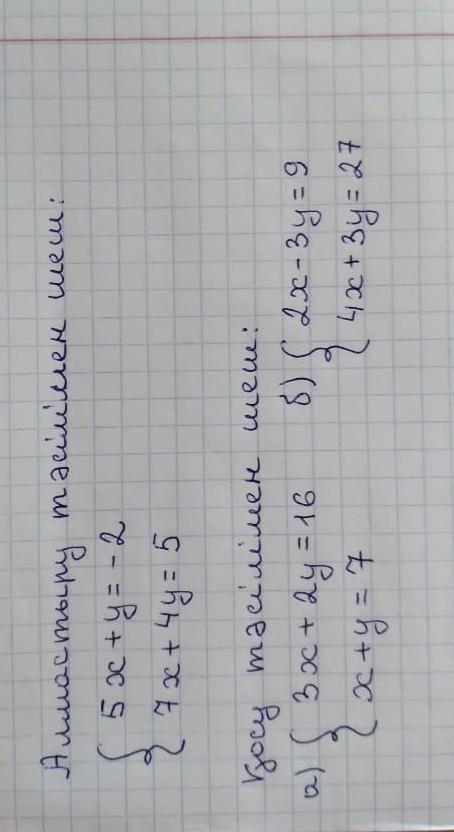 Алмастыру тәсілімен шеш:
{ 5x + y = -2
7x + 4y = 5
Қосу тәсілімен шеш:
а) { 3x + 2y = 16 б) { 2x - 3y = 9
x + y = 7 4x + 3y = 27